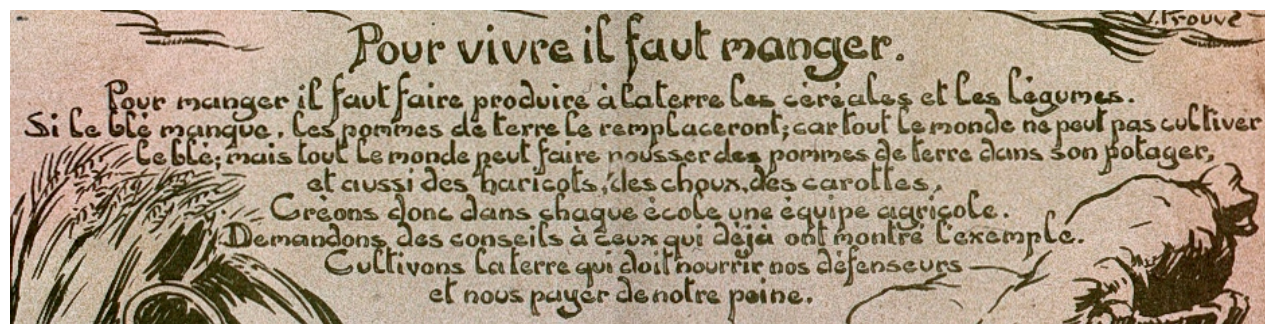 V. Prouvé
Pour vivre il faut manger.
Pour manger il faut faire produire à la terre les céréales et les légumes.
Si le blé manque, les pommes de terre le remplaceront; car tout le monde ne peut pas cultiver
le blé; mais tout le monde peut faire pousser des pommes de terre dans son potager,
et aussi des haricots, des choux, des carottes.
Créons donc dans chaque école une équipe agricole.
Demandons des conseils à ceux qui déjà ont montré l'exemple.
Cultivons la terre qui doit nourrir nos défenseurs
et nous payer de notre peine.